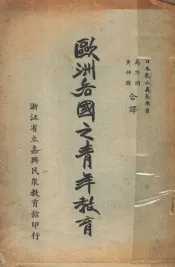 日本龍山義亮原著
黃仲圖
合譯
歐洲各國之青年教育
浙江省立嘉興民眾教育館印行